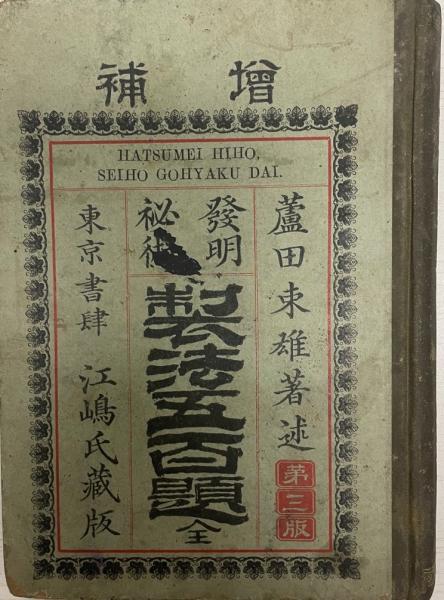 增補
HATSUMEI HIHO,
SEIHO GOHYAKU DAI.
蘆田束雄著述
第三版
發明
祕
製法五百題 全
東京書肆 江嶋氏藏版